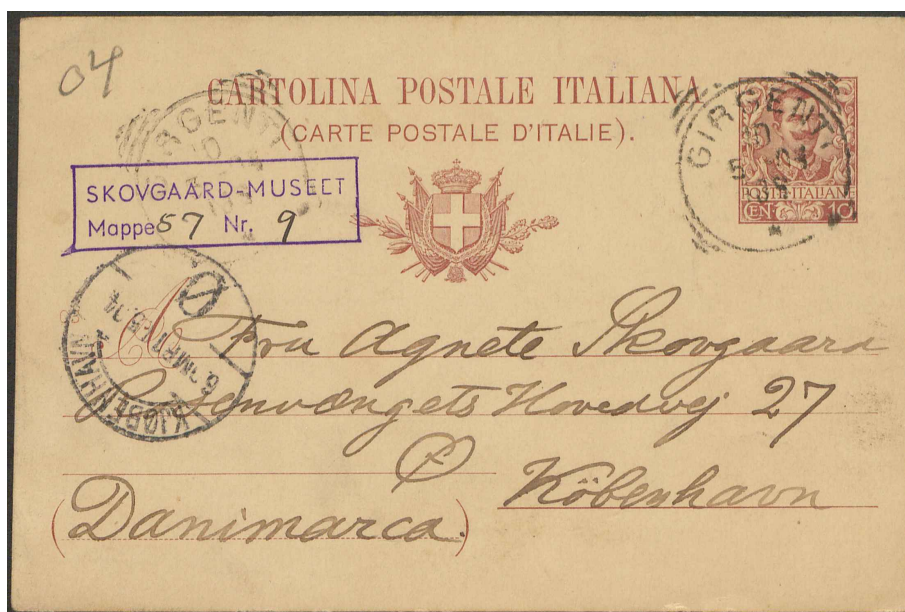 04
CARTOLINA POSTALE ITALIANA
(CARTE POSTALE D'ITALIE).
GIRGENTI
10
5 04
POSTE ITALIANE
CEN 10
SKOVGAARD-MUSEET
Mappe 57 Nr. 9
KJØBENHAVN
Ø
A
Fru Agnete Skovgaard
Rosenvængets Hovedvej 27
Ø
København
(Danimarca.)